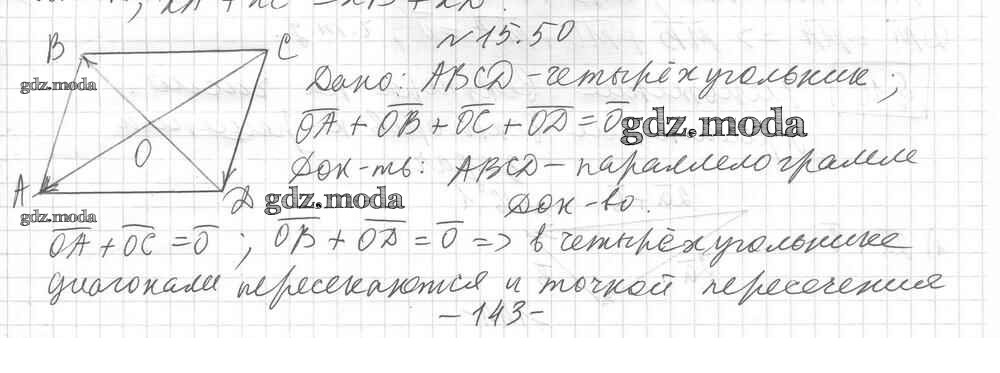 N15.50
B C
Дано: ABCD - четырёхугольник;
gdz.moda
OA + OB + OC + OD = O gdz.moda
O
Док-ть: ABCD - параллелограмм
A D gdz.moda
Док-во.
gdz.moda
OA + OC = O ; OB + OD = O => в четырёхугольнике
диагонали пересекаются и точкой пересечения
-143-